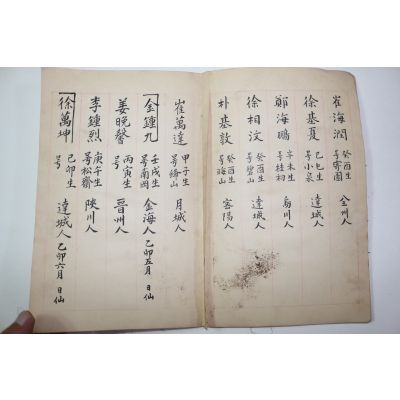 崔海潤 癸酉生 号雩圃 全州人
徐基夏 己巳生 号小泉 達城人
鄭海鵬 辛未生 号桂初 烏川人
徐相汶 癸酉生 号碧山 達城人
朴基敦 癸酉生 号晦山 密陽人
崔萬達 甲子生 号絳山 月城人
金鍾九 壬戌生 号南岡 金海人 乙卯五月 日仙
姜晩馨 丙寅生 号 晋州人
李鍾烈 庚午生 号松齋 陜川人
徐萬坤 己卯生 号 達城人 乙卯六月 日仙